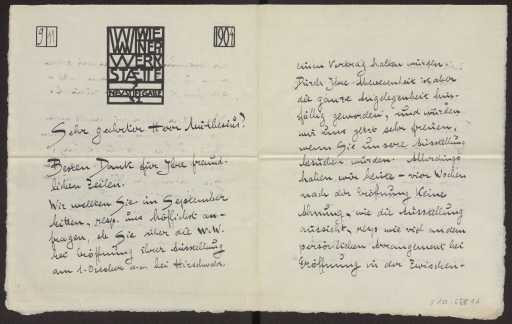 9 11
WIENER
WERK
STÄTTE
NEUSTIFTGASSE
32
1904
Sehr geehrter Herr Muthesius!
Besten Dank für Ihre freund-
lichen Zeilen.
Wir wollten Sie im September
bitten, resp. uns höflichst an-
fragen, ob Sie über die W.W.
bei Eröffnung ihrer Ausstellung
am 1. October a.c. bei Hirschwald
einen Vortrag halten würden.
Durch Ihre Abwesenheit ist aber
die ganze Angelegenheit hin-
fällig geworden, und würden
wir uns sehr freuen,
wenn Sie unsere Ausstellung
besuchen würden. Allerdings
haben wir heute - vier Wochen
nach der Eröffnung keine
Ahnung, wie die Ausstellung
aussieht, resp. wie viel an dem
persönlichen Arrangement bei
Eröffnung in der Zwischen-